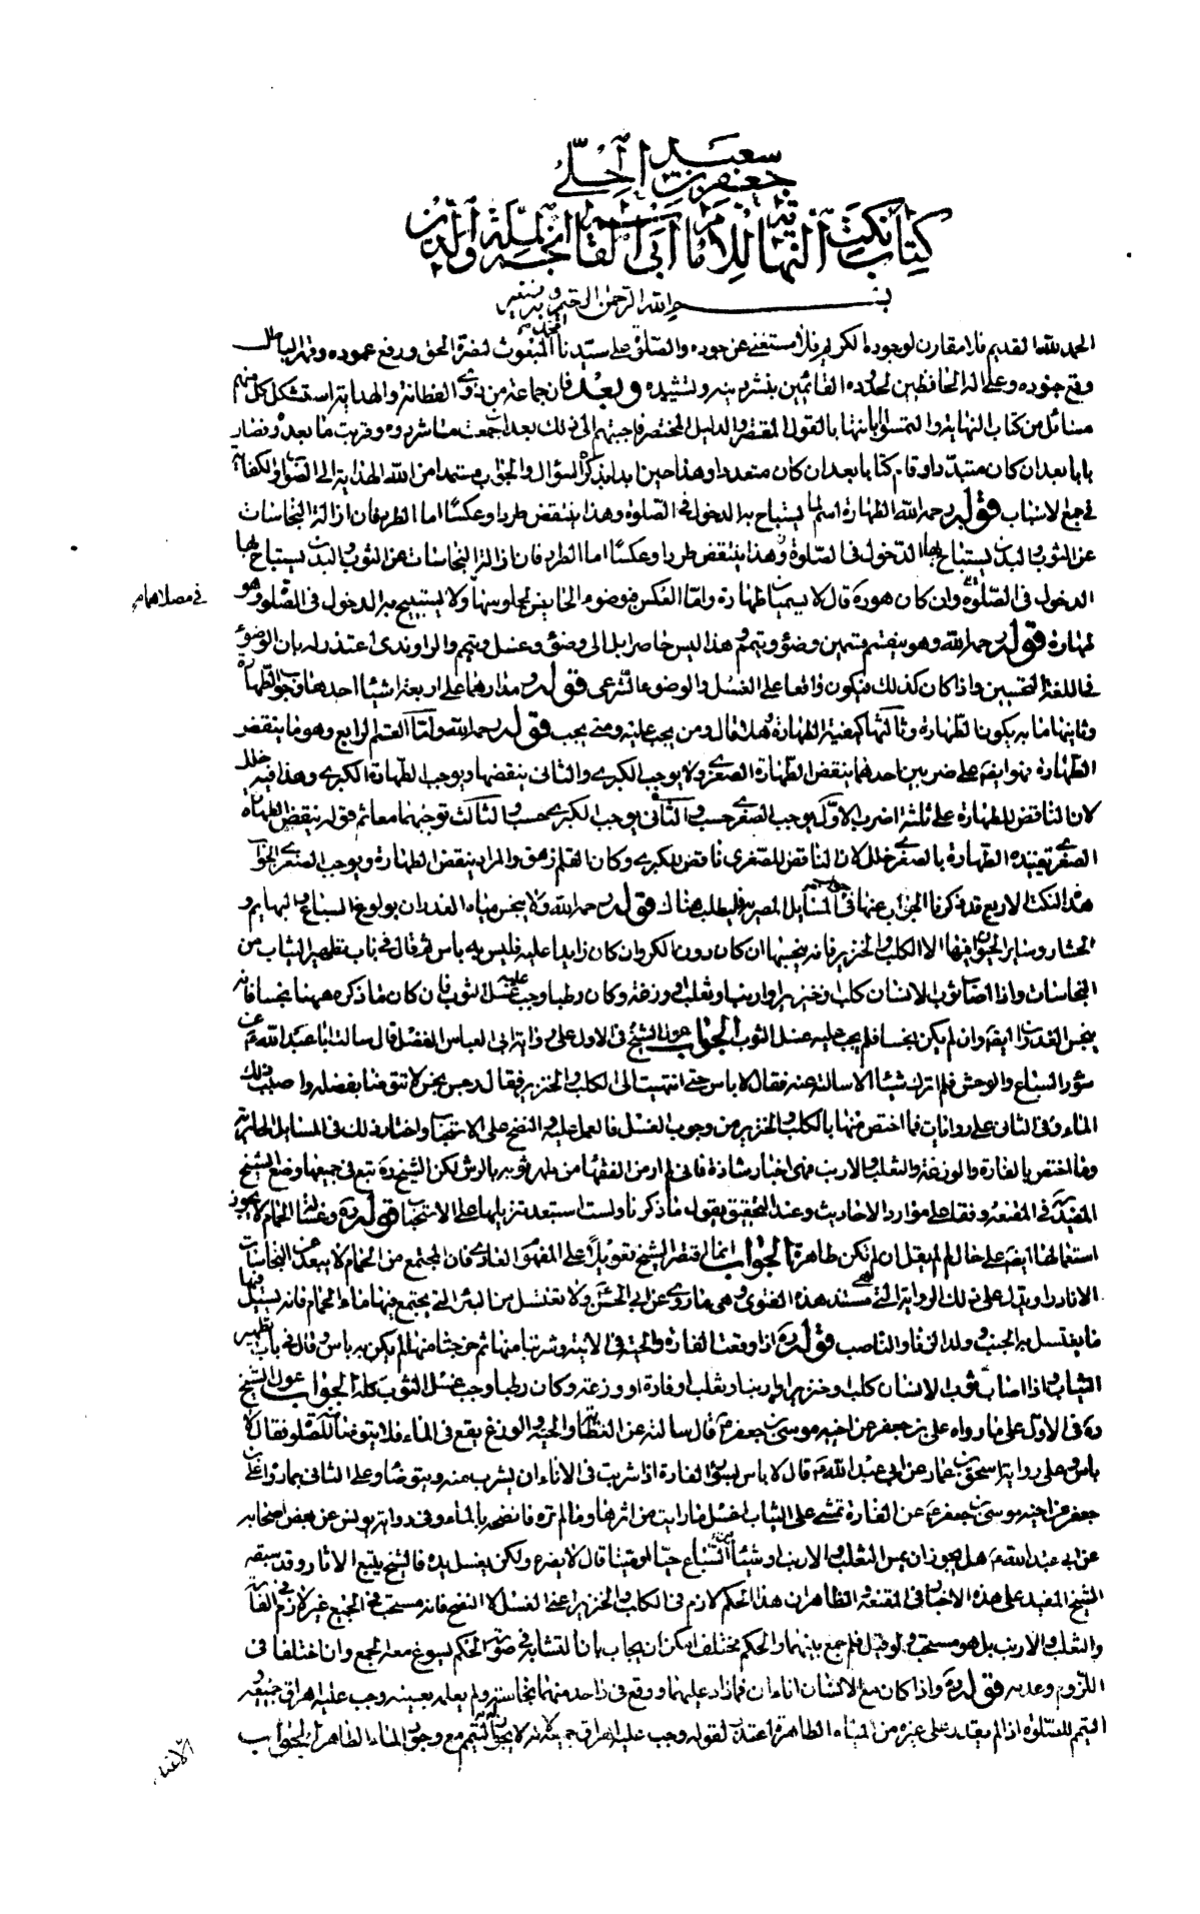 كتاب نكت النهاية للامام ابى القاسم نجم الملة والدين
جعفر بن سعيد الحلى
بسم الله الرحمن الرحيم وبه نستعين
الحمد لله القديم فلا مقارن لوجوده الكريم فلا مستغنى عن جوده والصلوة على سيدنا محمد المبعوث لنصرة الحق ورفع عموده وقهر الباطل
وقمع جنوده وعلى اله الحافظين لحدوده القائمين بنشر دينه وتشييده وبعد فان جماعة من ذوى الفطانة والهداية استشكل كل منهم
مسائل من كتاب النهاية والتمسوا ابانتها بالقول المقتصر والدليل المختصر فاجبتهم الى ذلك بعد ان جمعت ما شردوه وقربت ما بعدوه فصار
بابا بعد ان كان متبددا وقام كتابا بعد ان كان متعددا وهذا حين ابدا بذكر السؤال والجواب مستمدا من الله الهداية الى الصواب والكفاية
فى جميع الاسباب قوله رحمه الله الطهارة اسم لما يستباح به الدخول فى الصلوة وهذا ينتقض طردا وعكسا اما الطرد فان ازالة النجاسات
عن الثوب والبدن يستباح بها الدخول فى الصلوة وهذا ينتقض طردا وعكسا اما الطرد فان ازالة النجاسات عن الثوب والبدن يستباح بها
الدخول فى الصلوة وان كان هو ره قال لا يسميان طهارة واما العكس فوضوء الحائض لجلوسها ولا يستبيح به الدخول فى الصلوة وهو
فى مصلاها
طهارة قوله رحمه الله وهو ينقسم قسمين وضوء وتيمم وهذا ليس حاصرا بل الى وضوء وغسل وتيمم والراوندى اعتذر له بان الوضوء
فى اللغة التحسين واذا كان كذلك فيكون واقعا على الغسل والوضوء الشرعى قوله ومدارهما على اربعة اشياء احدها وجوب الطهارة
وثانيها ما به يكون الطهارة وثالثها كيفية الطهارة وهلا قال ومن يجب عليه ومتى يجب قوله رحمه الله واما القسم الرابع وهو ما ينقض
الطهارة فهو ايضا على ضربين احدهما ينقض الطهارة الصغرى ولا يوجب الكبرى والثانى ينقضها ويوجب الطهارة الكبرى وهذا فيه خلل
لان الناقض للطهارة على ثلثة اضرب الاول يوجب الصغرى حسب والثانى يوجب الكبرى حسب والثالث توجبهما معا ثم قوله ينقض الطهارة
الصغرى تقييده الطهارة بالصغرى خلل لان الناقض للصغرى ناقض للكبرى وكان القلم زهق والمراد ينقض الطهارة ويوجب الصغرى الجواب
هذه النكت الاربع قد ذكرنا الجواب عنها فى جواب المسايل المصرية فليطلب هناك قوله رحمه الله ولا ينجس مياه الغدران بولوغ السباع والبهايم و
الحشار وساير الحيوان فيها الا الكلب والخنزير فانه ينجسها ان كان دون الكر وان كان زايدا عليه فليس به باس ثم قال فى باب تطهير الثياب من
النجاسات واذا اصاب ثوب الانسان كلب وخنزير او ارنب او ثعلب او وزغة وكان رطبا وجب عليه غسل الثوب فان كان ما ذكره ههنا نجسا فانه
ينجس الغدران ايضا وان لم يكن نجسا فلم يجب عليه غسل الثوب الجواب عول الشيخ فى الاول على رواية ابى العباس الفضل قال سالت ابا عبد الله ع عن
سؤر السباع والوحش فلم اترك شيئا الا سالته عنه فقال لا باس حتى انتهيت الى الكلب والخنزير فقال رجس نجس لا تتوضأ بفضله واصبب ذلك
الماء وفى الثانى على روايات فما اختص منها بالكلب والخنزير من وجوب الغسل فالعمل عليه والنضح على الاستحباب واختار ذلك فى المسايل الحايرية
وما اختص بالفارة والوزغة والثعلب والارنب فهى اخبار شاذة فانى لم ار من الفقهاء من طهر ثوبه بالرش لكن الشيخ ره تبع فى جميعها وضع الشيخ
المفيد ره فى المقنعة ونقله على موارد الاحاديث وعند التحقيق يقول ما ذكرنا ولست استبعد تنزيلها على الاستحباب قوله ره وغسالة الحمام لا يجوز
استعمالها ايضا على حال لم لم يقل ان لم تكن طاهرة الجواب انما اقتصر الشيخ تعويلا على المفهوم العادى فان المجتمع من الحمام لا يبعد عن النجاسات
الا نادرا ويدل على ذلك الرواية التى هى مستند هذه الفتوى وهى ما روى عن ابى الحسن ع ولا تغتسل من البئر التى يجتمع فيها ماء الحمام فانه يسيل فيها
ما يغتسل به الجنب وولد الزنا والناصب قوله ره اذا وقعت الفارة والحية فى الانية وشربتا منها ثم خرجتا منها لم يكن به باس وقال فى باب تطهير
الثياب واذا اصاب ثوب الانسان كلب وخنزير او ارنب او ثعلب او فارة او وزغة وكان رطبا وجب غسل الثوب كله الجواب عول الشيخ
ره فى الاول على ما رواه على بن جعفر عن اخيه موسى بن جعفر ع قال سالته عن العظاية والحية والوزغ يقع فى الماء فلا يتوضأ منه للصلوة فقال لا
باس وعلى رواية اسحق بن عمار عن ابى عبد الله ع قال لا باس بسؤر الفارة اذا شربت فى الاناء ان يشرب منه ويتوضأ وعلى الثانى بما رواه على بن
جعفر عن اخيه موسى بن جعفر ع عن الفارة تمشى على الثياب اغسل ما رايت من اثرها وما لم تره فانضحه بالماء وفى رواية يونس عن بعض اصحابه
عن ابى عبد الله ع هل يجوز ان يمس الثعلب والارنب او شيئا من السباع حيا او ميتا قال لا يضره ولكن يغسل يده فالشيخ يتبع الاثار وقد سبقه
الشيخ المفيد على هذه الاخبار فى المقنعة والظاهر ان هذا الحكم لازم فى الكلب والخنزير اعنى الغسل لا النضح فانه مستحب فى الجميع غير لازم فى الفارة
والثعلب والارنب بل هو مستحب ولو قيل فلم جمع بينهما والحكم مختلف امكن ان يجاب بان التشابه فى صورة الحكم يسوغ معه الجمع وان اختلفا فى
اللزوم وعدمه قوله ره واذا كان مع الانسان اناءان فما زاد عليهما ووقع فى واحد منهما نجاسة ولم يعلمه بعينه وجب عليه اهراق جميعه و
التيمم للصلوة اذا لم يقدر على غيره من المياه الطاهرة اعتذر لقوله وجب عليه اهراق جميعه لانه لا يجوز له التيمم مع وجود الماء الطاهر الجواب